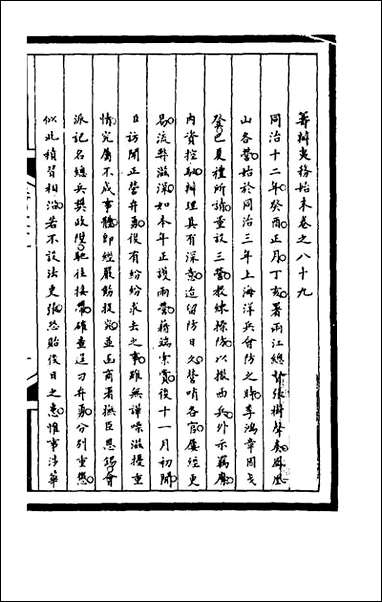 籌辦夷務始末卷之八十九
同治十二年癸酉正月丁亥署兩江總督張樹聲奏鳳凰
山各營始於同治三年上海洋兵會防之時李鴻章因戈
登已夏種所請查設三營教練操防以撥西兵外示羈縻
內資控馭辦理具有深意迨留防日久營哨各官屢經更
易流弊滋深如本年正護兩營蔣瑞案賞後十一月初聞
日訪聞正營弁勇復有紛紛求去之事雖無譁噪滋擾重
情究屬不成事體即經嚴飭提究並函商署撫臣恩錫會
派記名總兵樊政陞馳往接帶確查逞刁弁勇分別重懲
似此積習相沿若不設法更張恐貽後日之患惟事涉華